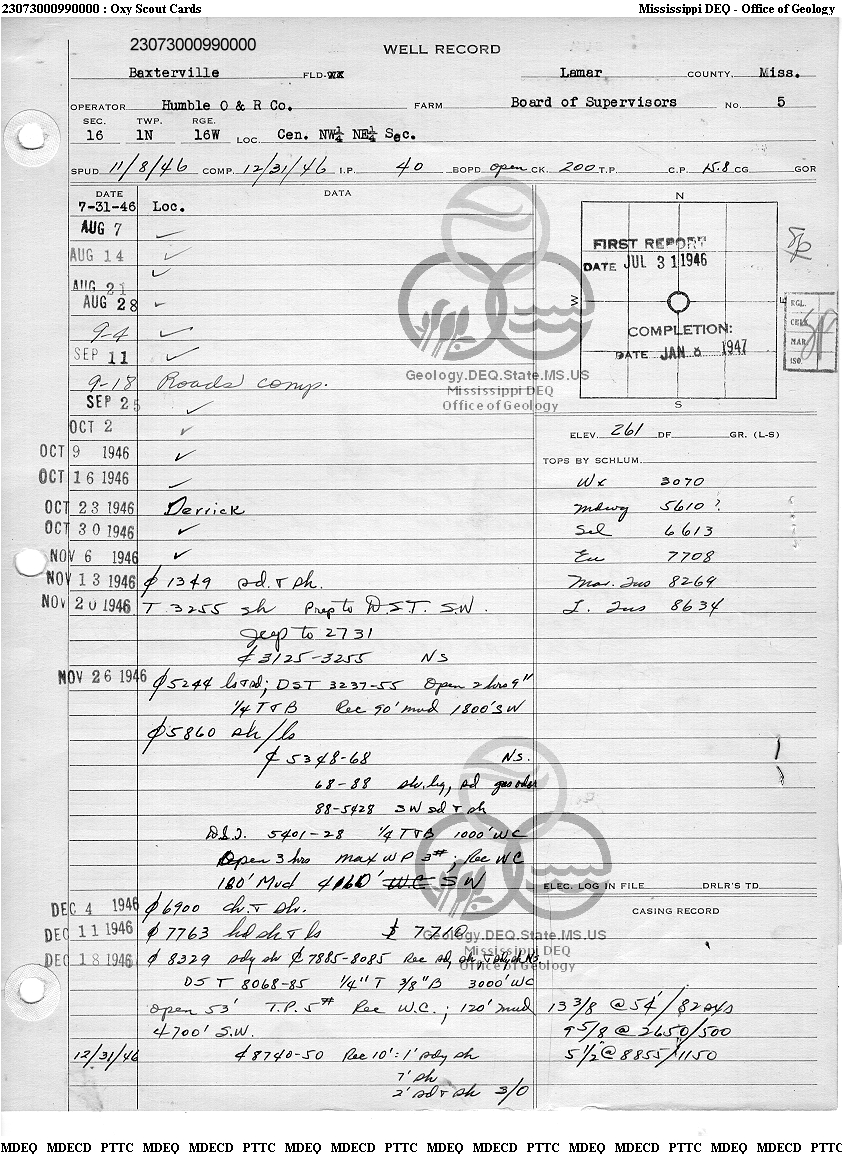 23073000990000 : Oxy Scout Cards Mississippi DEQ - Office of Geology
23073000990000
WELL RECORD
Baxterville FLD-WX Lamar COUNTY. Miss.
OPERATOR Humble O & R Co. FARM Board of Supervisors No. 5
SEC. TWP. RGE.
16 1N 16W LOC. Cen. NW¼ NE¼ Sec.
SPUD 11/8/46 COMP. 12/31/46 I.P. 40 BOPD open CK. 200 T.P. C.P. 15.8 CG GOR
DATE DATA
7-31-46 Loc.
AUG 7 ✓
AUG 14 ✓
AUG 21 ✓
AUG 28 ✓
9-4 ✓
SEP 11 ✓
9-18 Roads comp.
SEP 25 ✓
OCT 2 ✓
OCT 9 1946 ✓
OCT 16 1946 ✓
OCT 23 1946 Derrick
OCT 30 1946 ✓
NOV 6 1946 ✓
NOV 13 1946 ₵ 1349 sd. & sh.
NOV 20 1946 T 3255 sh Prep to D.S.T. S.W.
Jeep to 2731
₵ 3125-3255 NS
NOV 26 1946 ₵ 5244 ls & sd; DST 3237-55 Open 2 hrs 9"
¼ T & B Rec 90' mud 1800' SW
₵ 5860 sh/ls
₵ 5348-68 NS.
68-88 sh, lig, sd gas odor
88-5428 SW sd & sh
D.S.T. 5401-28 ¼ T & B 1000' WC
Open 3 hrs max WP 3#; Rec WC
180' Mud 4160' W.C. SW
DEC 4 1946 ₵ 6900 ch. & sh.
DEC 11 1946 ₵ 7763 hd sh & ls 7710
DEC 18 1946 ₵ 8329 sdy sh ₵ 7885-8085 Rec sdy sh, NS.
DST 8068-85 ¼" T 3/8" B 3000' WC
open 53' T.P. 5# Rec W.C.; 120' mud
4700' S.W.
12/31/46 ₵ 8740-50 Rec 10': 1' sdy sh
7' sh
2' sd & sh 3/0
N
W
E
S
FIRST REPORT
DATE JUL 31 1946
COMPLETION:
DATE JAN 8 1947
EGL.
MAR.
ISO.
Geology.DEQ.State.MS.US
Mississippi DEQ
Office of Geology
ELEV. 261 DF GR. (L-S)
TOPS BY SCHLUM.
Wx 3070
mdwy 5610 ?
Sel 6613
Eu 7708
Mar. Tus 8269
L. Tus 8634
ELEC. LOG IN FILE DRLR'S TD
CASING RECORD
Geology.DEQ.State.MS.US
Mississippi DEQ
Office of Geology
13 3/8 @ 54' / 82 sxs
9 5/8 @ 2650/500
5 ½ @ 8855/1150
MDEQ MDECD PTTC MDEQ MDECD PTTC MDEQ MDECD PTTC MDEQ MDECD PTTC MDEQ MDECD PTTC MDEQ MDECD PTTC